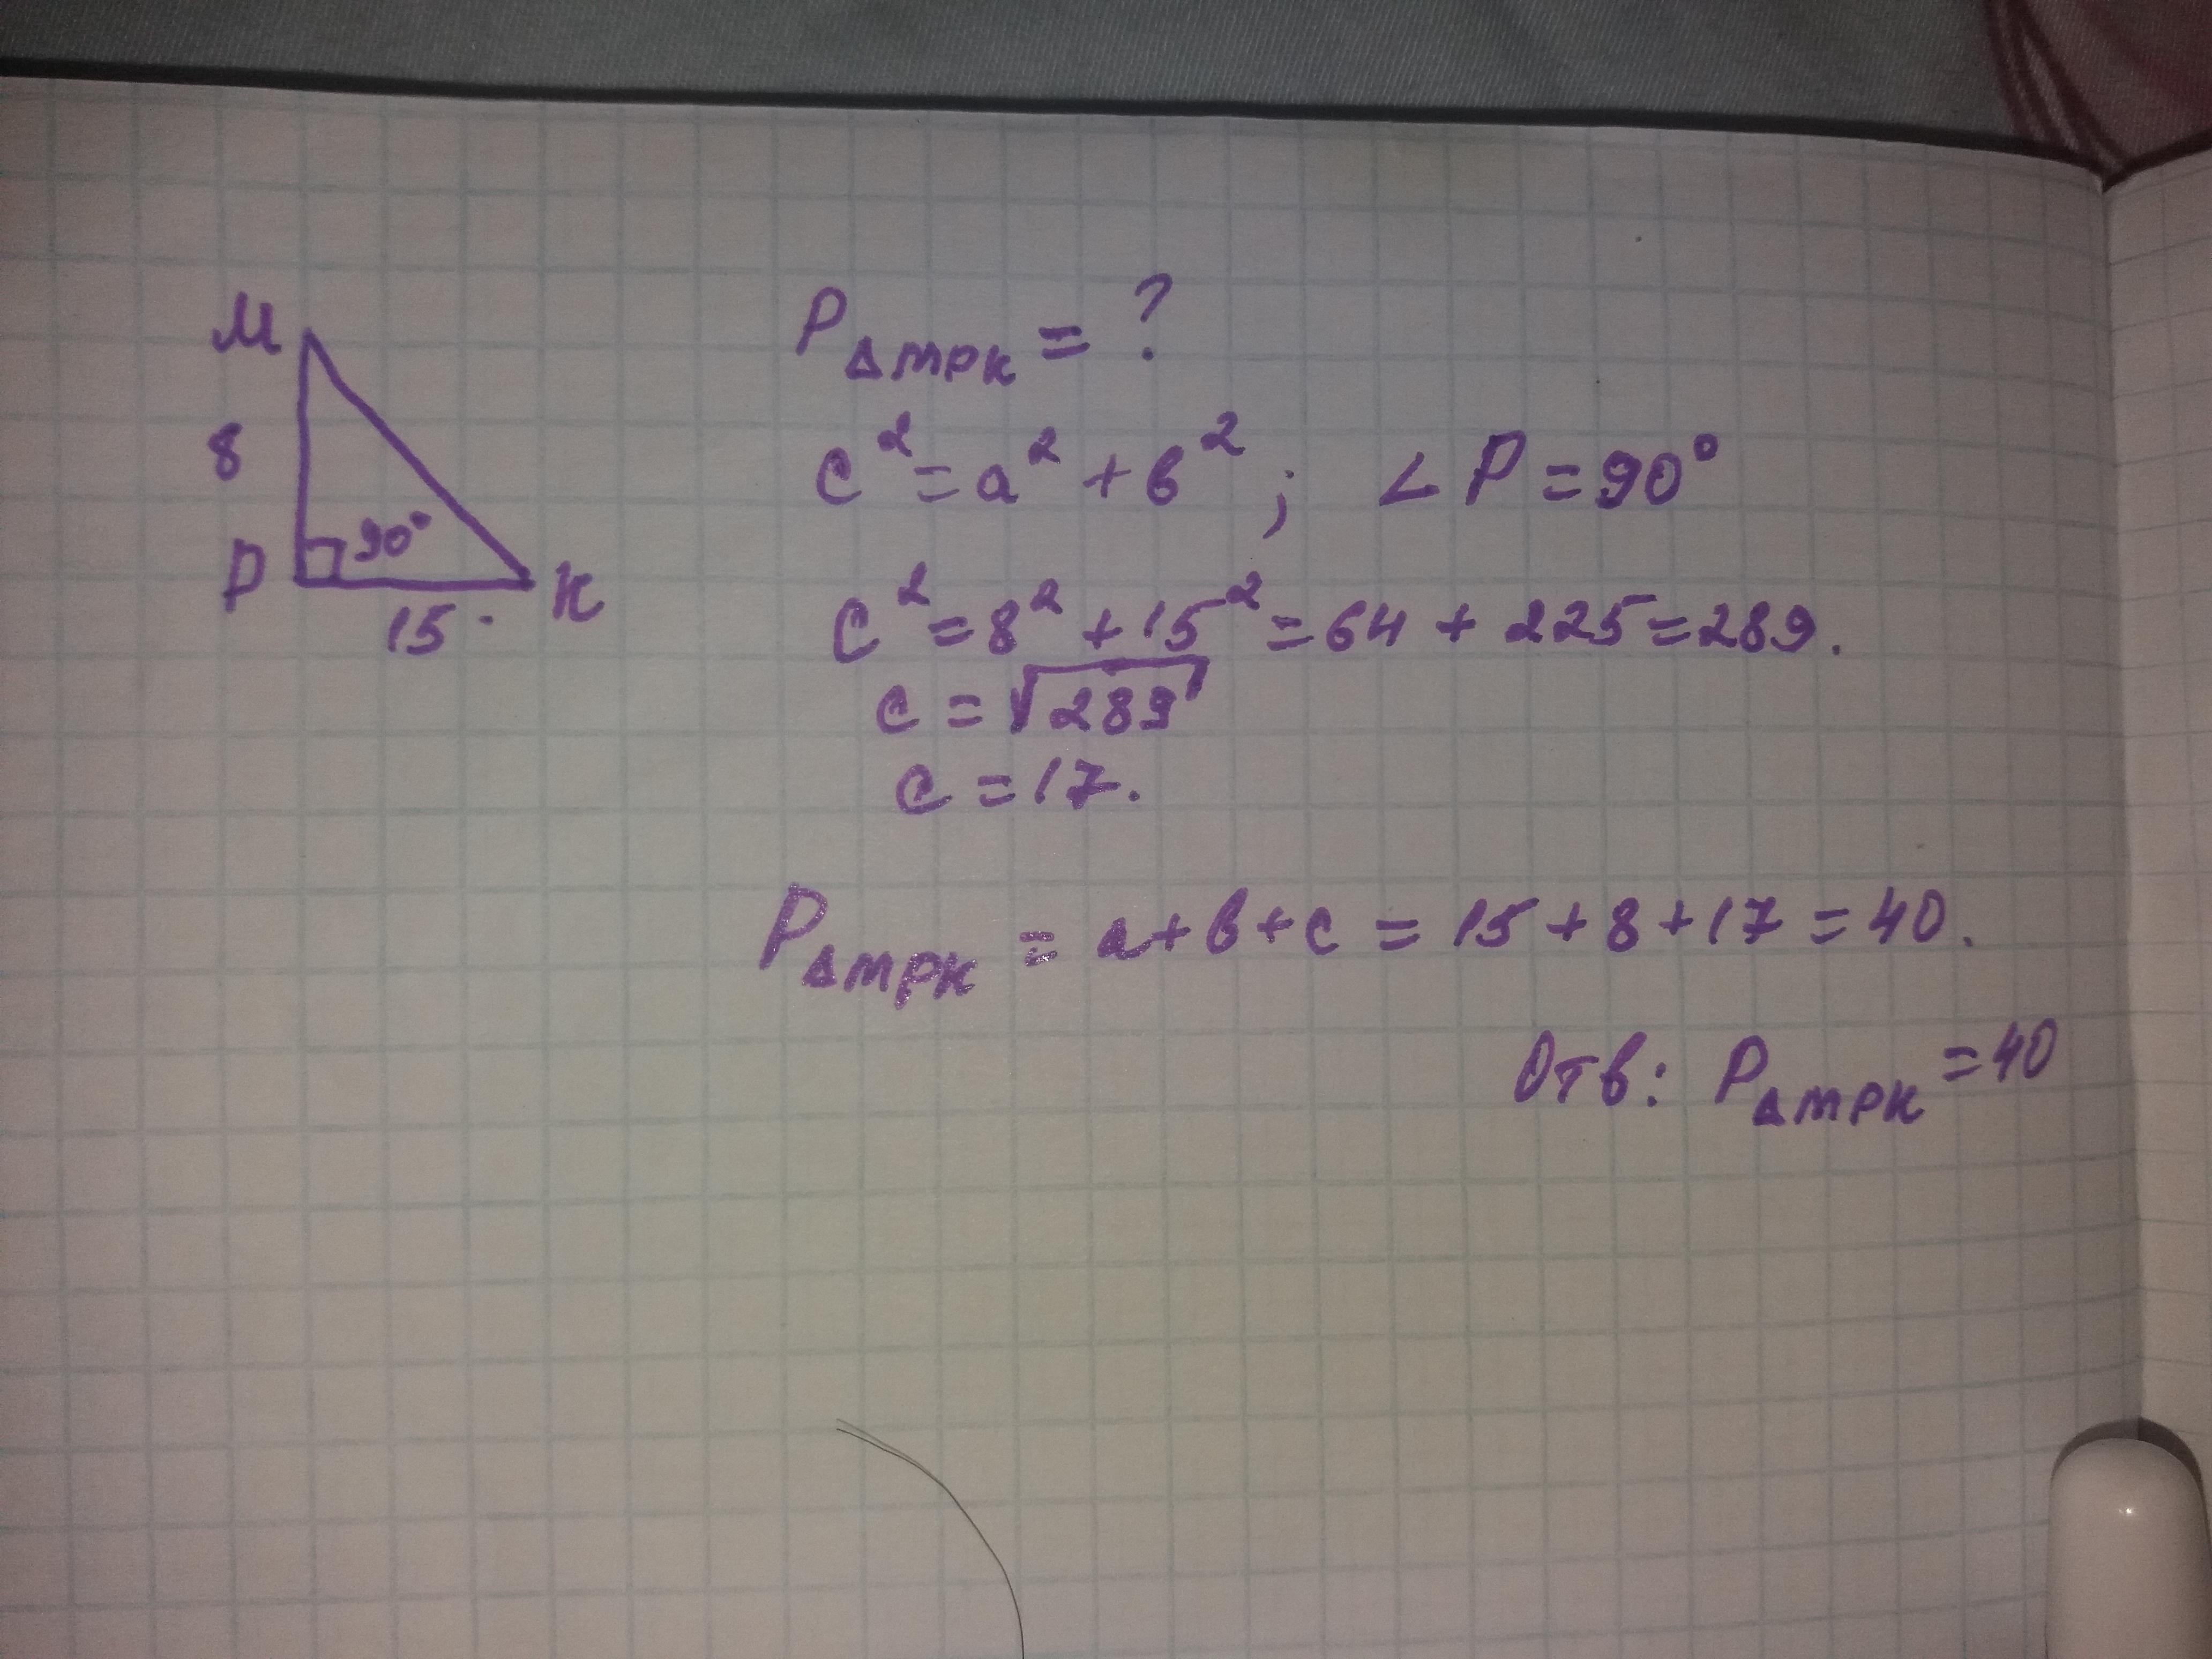 М
8
Р
90°
15
К
P△МРК = ?
c² = a² + в² ; ∠P = 90°
c² = 8² + 15² = 64 + 225 = 289.
c = √289
c = 17.
P△МРК = a + в + c = 15 + 8 + 17 = 40.
Отв: P△МРК = 40